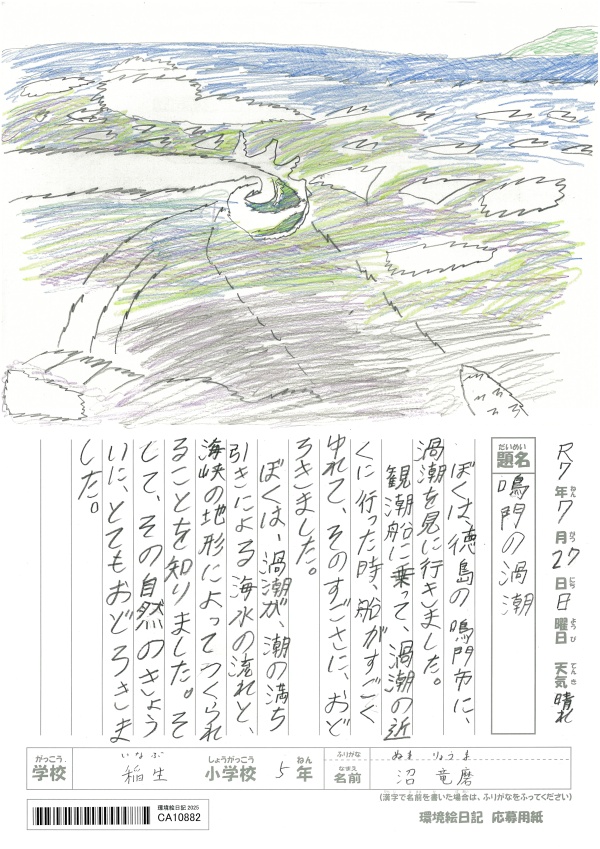 R7年7月27日日曜日 天気 晴れ
ねん がつ にち ようび てんき
だいめい
題名 鳴門の渦潮
ぼくは、徳島の鳴門市に、
渦潮を見に行きました。
観潮船に乗って、渦潮の近
くに行った時、船がすごく
ゆれて、そのすごさに、おど
ろきました。
ぼくは、渦潮が、潮の満ち
引きによる海水の流れと、
海峡の地形によってつくられ
ることを知りました。そ
して、その自然のきょう
いに、とてもおどろきま
した。
がっこう いなぶ しょうがっこう ねん ふりがな ぬま りょうま
学校 稲生 小学校 5年 なまえ 名前 沼 竜磨
(漢字で名前を書いた場合は、ふりがなをふってください)
環境絵日記 2025
CA10882
環境絵日記 応募用紙